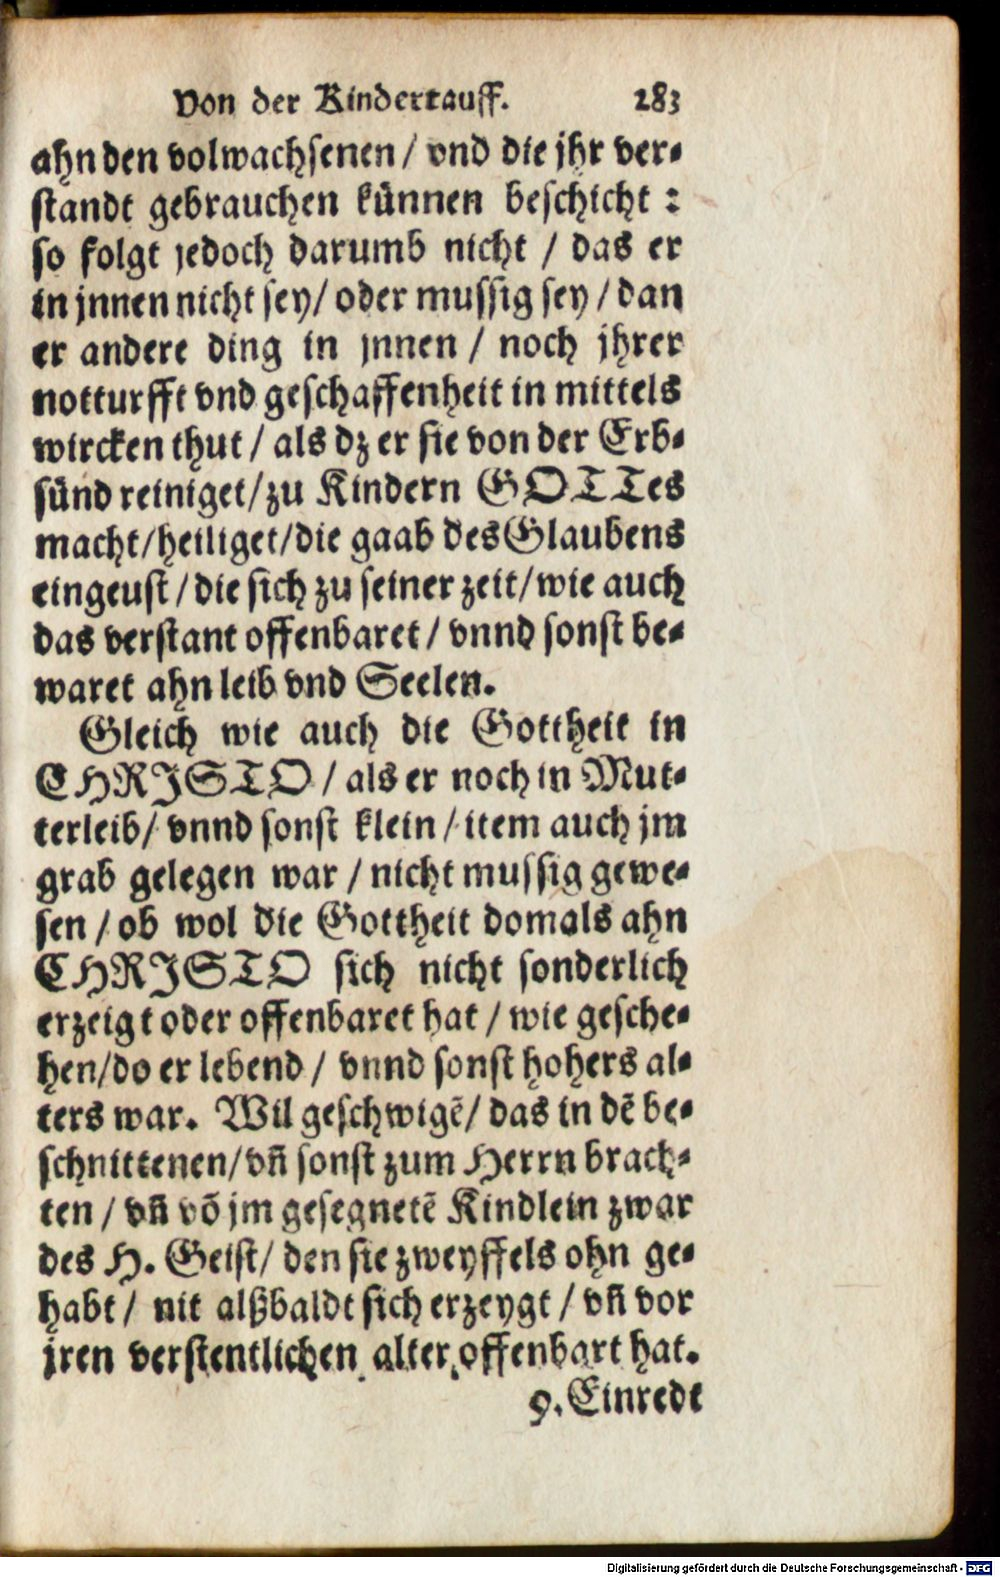 Von der Kindertauff. 283
ahn den volwachsenen / vnd die jhr ver-
standt gebrauchen künnen beschicht :
so folgt jedoch darumb nicht / das er
in jnnen nicht sey / oder mussig sey / dan
er andere ding in jnnen / noch jhrer
notturfft vnd geschaffenheit in mittels
wircken thut / als dz er sie von der Erb-
sünd reiniget / zu Kindern GOTTes
macht / heiliget / die gaab des Glaubens
eingeust / die sich zu seiner zeit / wie auch
das verstant offenbaret / vnnd sonst be-
waret ahn leib vnd Seelen.
Gleich wie auch die Gottheit in
CHRISTO / als er noch in Mut-
terleib / vnnd sonst klein / item auch jm
grab gelegen war / nicht mussig gewe-
sen / ob wol die Gottheit domals ahn
CHRISTO sich nicht sonderlich
erzeigt oder offenbaret hat / wie gesche-
hen / do er lebend / vnnd sonst hohers al-
ters war. Wil geschwigē / das in dē be-
schnittenen / vñ sonst zum Herrn brach-
ten / vñ vō jm gesegnetē Kindlein zwar
des H. Geist / den sie zweyffels ohn ge-
habt / nit alßbaldt sich erzeygt / vñ vor
jren verstentlichen alter offenbart hat.
9. Einredt
Digitalisierung gefördert durch die Deutsche Forschungsgemeinschaft - DFG